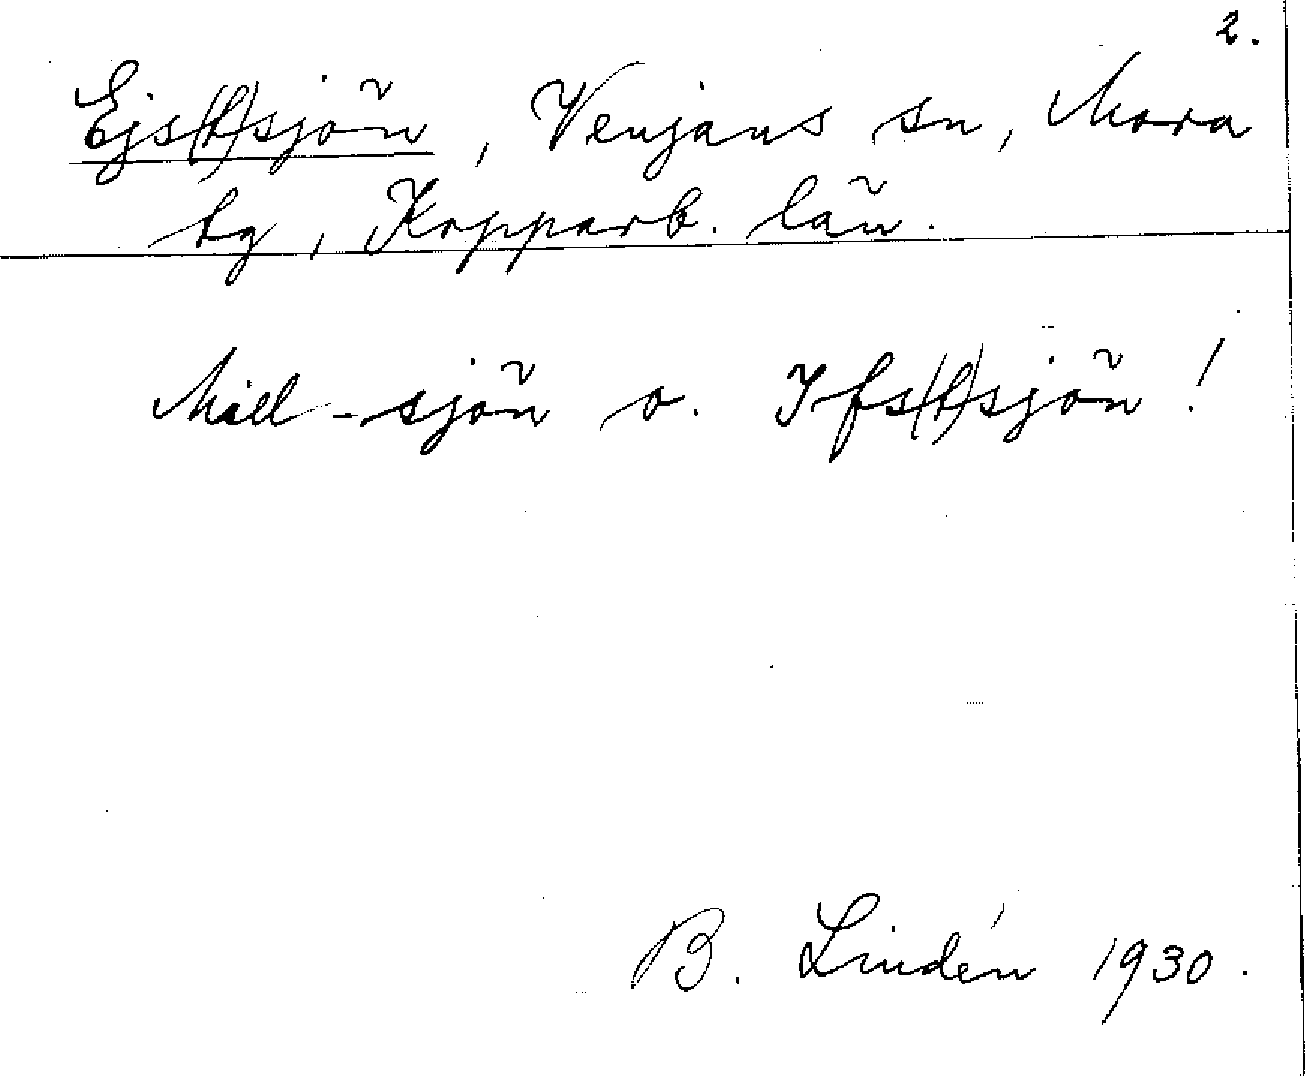 2.
Ejs(t)sjön, Venjans sn, Mora
tg, Kopparb. län.
Mill-sjön o. Ifs(t)sjön!
B. Lindén 1930.